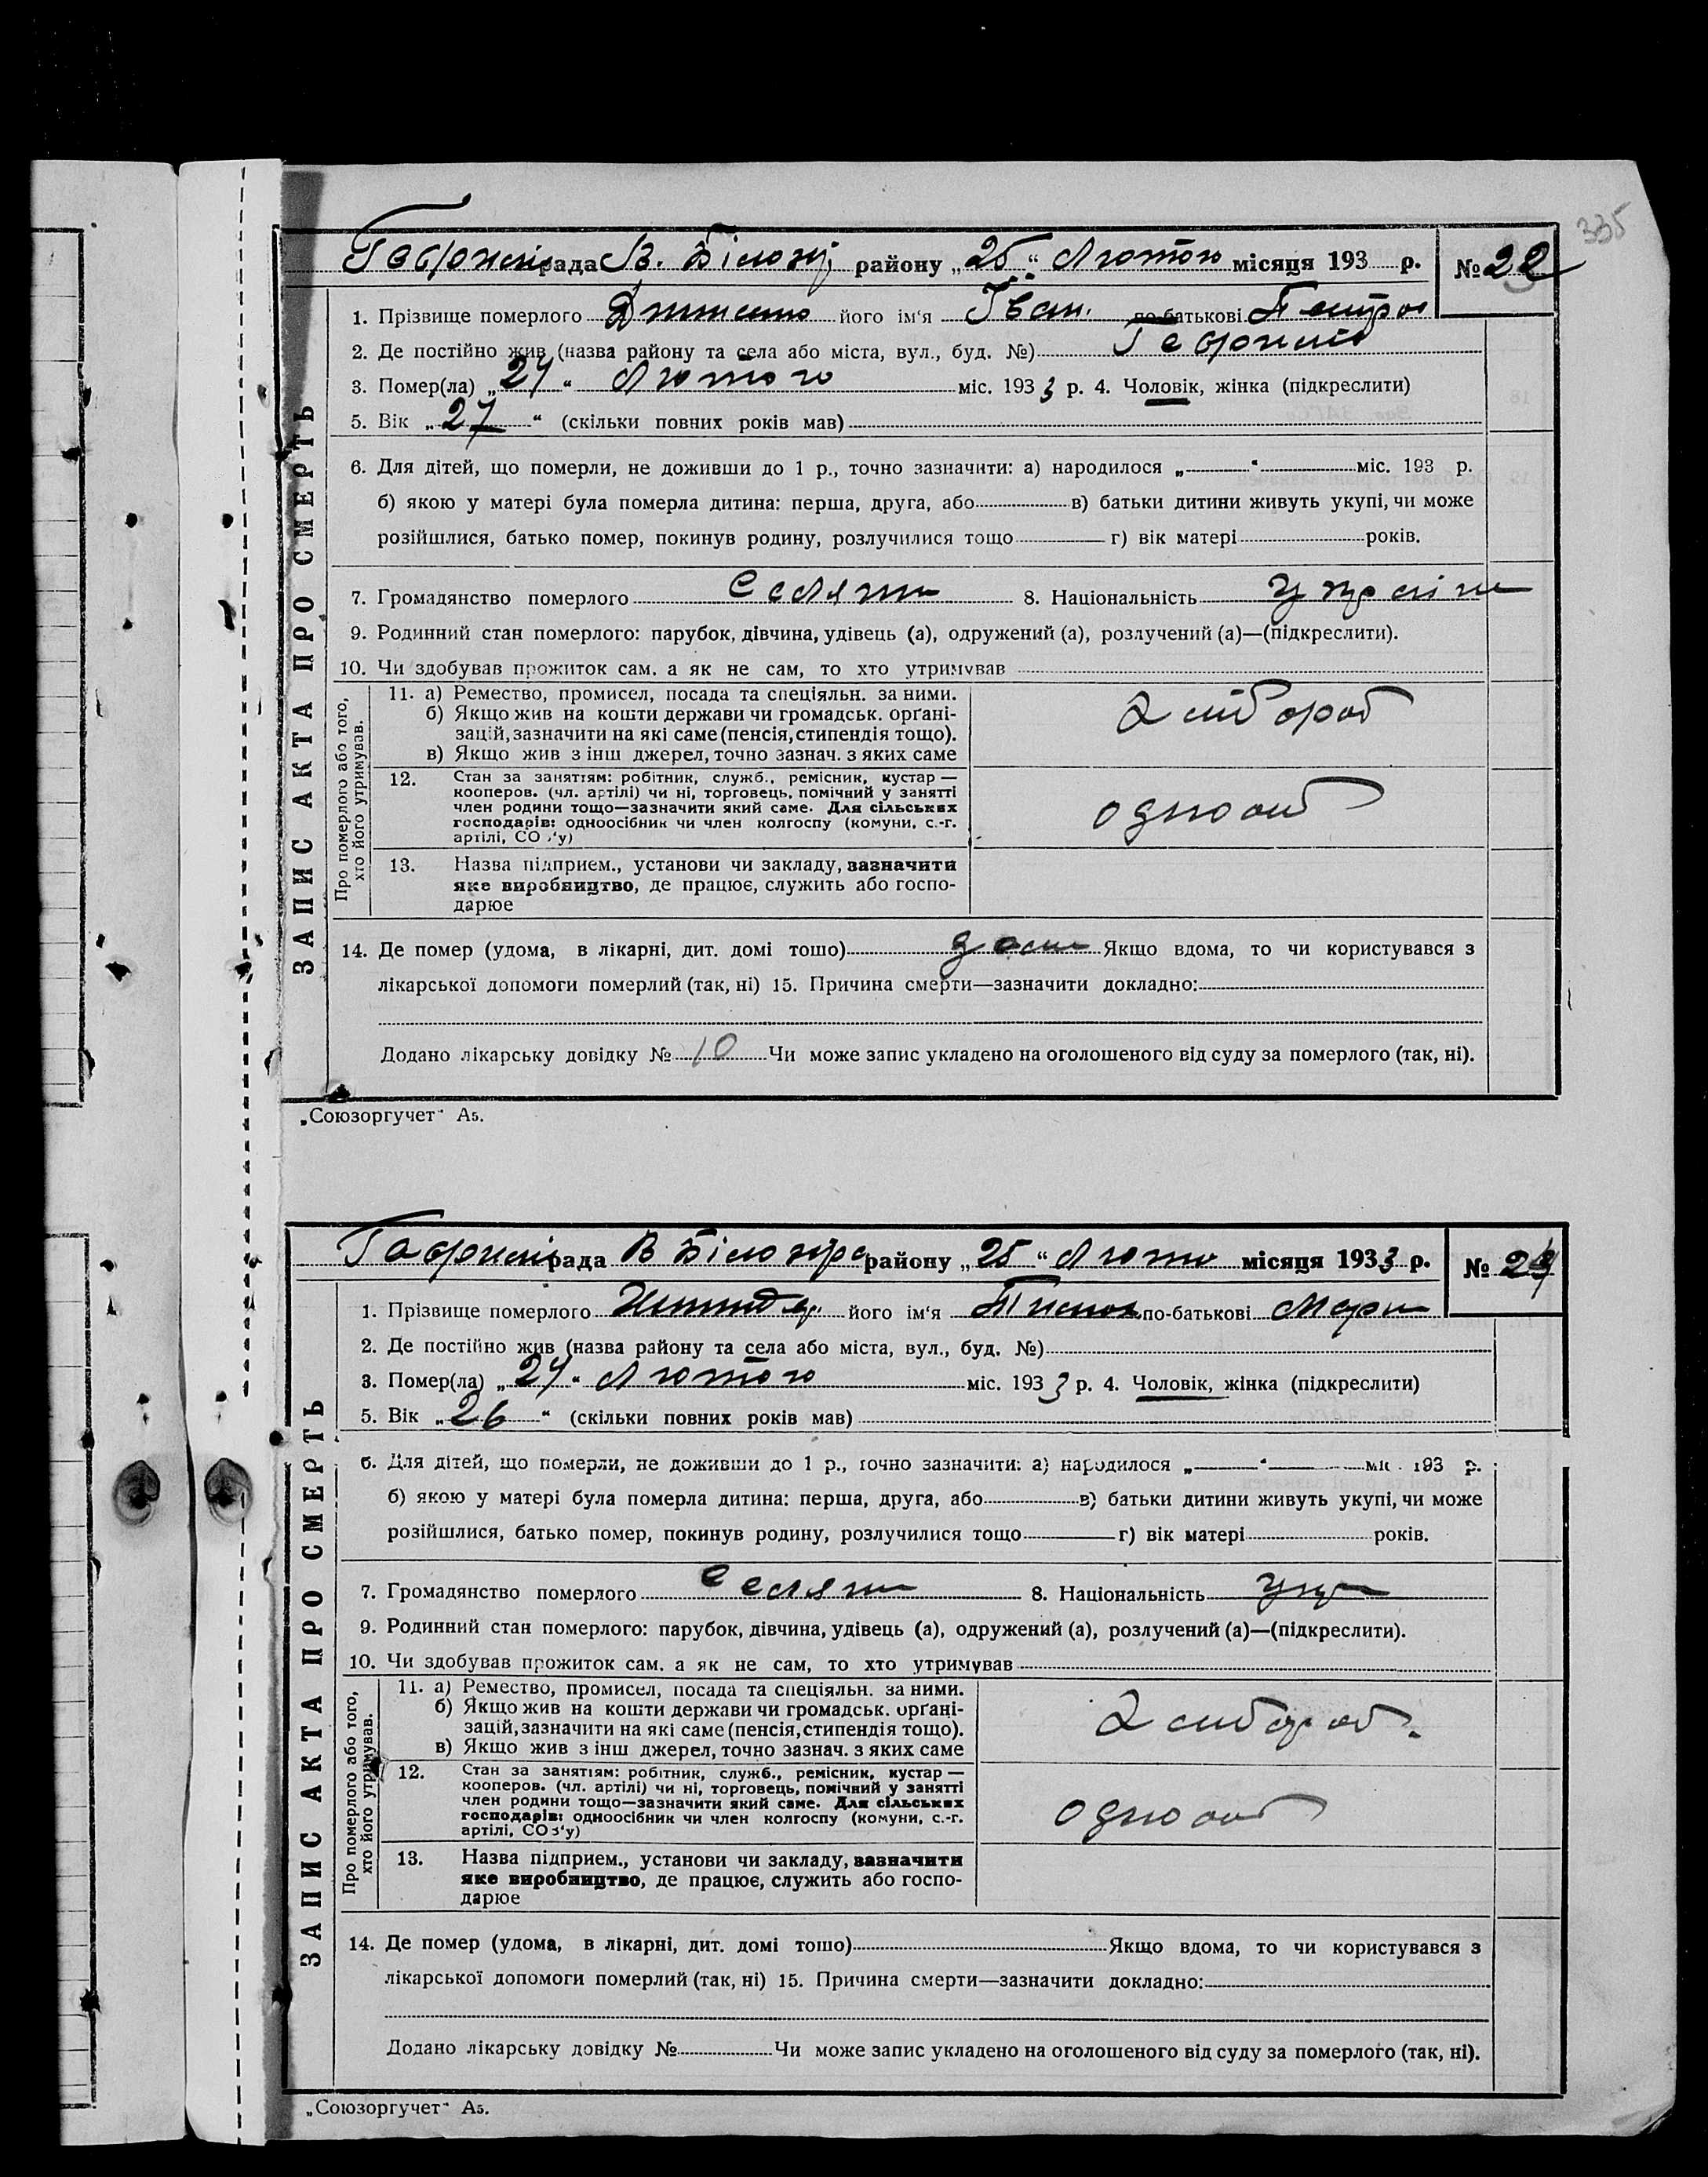 335
рада В. Білозір району „25“ Лютого місяця 193 р. № 22
1. Прізвище померлого його ім‘я Іван по-батькові Петров
2. Де постійно жив (назва району та села або міста, вул., буд. №)
3. Помер(ла) „24“ Лютого міс. 1933 р. 4. Чоловік, жінка (підкреслити)
5. Вік „27“ (скільки повних років мав)
6. Для дітей, що померли, не доживши до 1 р., точно зазначити: а) народилося „ “ міс. 193 р.
б) якою у матері була померла дитина: перша, друга, або в) батьки дитини живуть укупі, чи може
розійшлися, батько помер, покинув родину, розлучилися тощо г) вік матері років.
7. Громадянство померлого Селян 8. Національність україн
9. Родинний стан померлого: парубок, дівчина, удівець (а), одружений (а), розлучений (а)—(підкреслити).
10. Чи здобував прожиток сам. а як не сам, то хто утримував
Про померлого або того, хто його утримував.
11. а) Ремество, промисел, посада та спеціяльн. за ними.
б) Якщо жив на кошти держави чи громадськ. орґані-
зацій, зазначити на які саме (пенсія, стипендія тощо).
в) Якщо жив з інш джерел, точно зазнач. з яких саме
хлібороб
12. Стан за заняттям: робітник, служб., ремісник, кустар —
кооперов. (чл. артілі) чи ні, торговець, помічний у занятті
член родини тощо—зазначити який саме. Для сільських
господарів: одноосібник чи член колгоспу (комуни, с.-г.
артілі, СОЗ‘у)
одноос
13. Назва підприєм., установи чи закладу, зазначити
яке виробництво, де працює, служить або госпо-
дарює
14. Де помер (удома, в лікарні, дит. домі тощо) дома Якщо вдома, то чи користувався з
лікарської допомоги померлий (так, ні) 15. Причина смерти—зазначити докладно:
Додано лікарську довідку № 10 Чи може запис укладено на оголошеного від суду за померлого (так, ні).
ЗАПИС АКТА ПРО СМЕРТЬ
„Союзоргучет“ А5.
рада В Білозірс району „25“ Люто місяця 1933 р. №
1. Прізвище померлого його ім‘я по-батькові
2. Де постійно жив (назва району та села або міста, вул., буд. №)
3. Помер(ла) „24“ Лютого міс. 1933 р. 4. Чоловік, жінка (підкреслити)
5. Вік „26“ (скільки повних років мав)
6. Для дітей, що померли, не доживши до 1 р., точно зазначити: а) народилося „ “ міс. 193 р.
б) якою у матері була померла дитина: перша, друга, або в) батьки дитини живуть укупі, чи може
розійшлися, батько помер, покинув родину, розлучилися тощо г) вік матері років.
7. Громадянство померлого Селян 8. Національність укр
9. Родинний стан померлого: парубок, дівчина, удівець (а), одружений (а), розлучений (а)—(підкреслити).
10. Чи здобував прожиток сам. а як не сам, то хто утримував
Про померлого або того, хто його утримував.
11. а) Ремество, промисел, посада та спеціяльн. за ними.
б) Якщо жив на кошти держави чи громадськ. орґані-
зацій, зазначити на які саме (пенсія, стипендія тощо).
в) Якщо жив з інш джерел, точно зазнач. з яких саме
хлібороб.
12. Стан за заняттям: робітник, служб., ремісник, кустар —
кооперов. (чл. артілі) чи ні, торговець, помічний у занятті
член родини тощо—зазначити який саме. Для сільських
господарів: одноосібник чи член колгоспу (комуни, с.-г.
артілі, СОЗ‘у)
одноос
13. Назва підприєм., установи чи закладу, зазначити
яке виробництво, де працює, служить або госпо-
дарює
14. Де помер (удома, в лікарні, дит. домі тощо) Якщо вдома, то чи користувався з
лікарської допомоги померлий (так, ні) 15. Причина смерти—зазначити докладно:
Додано лікарську довідку № Чи може запис укладено на оголошеного від суду за померлого (так, ні).
ЗАПИС АКТА ПРО СМЕРТЬ
„Союзоргучет“ А5.